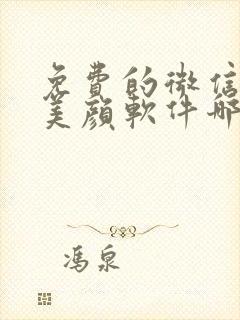 免費的微信
美顏軟件哪
馮泉